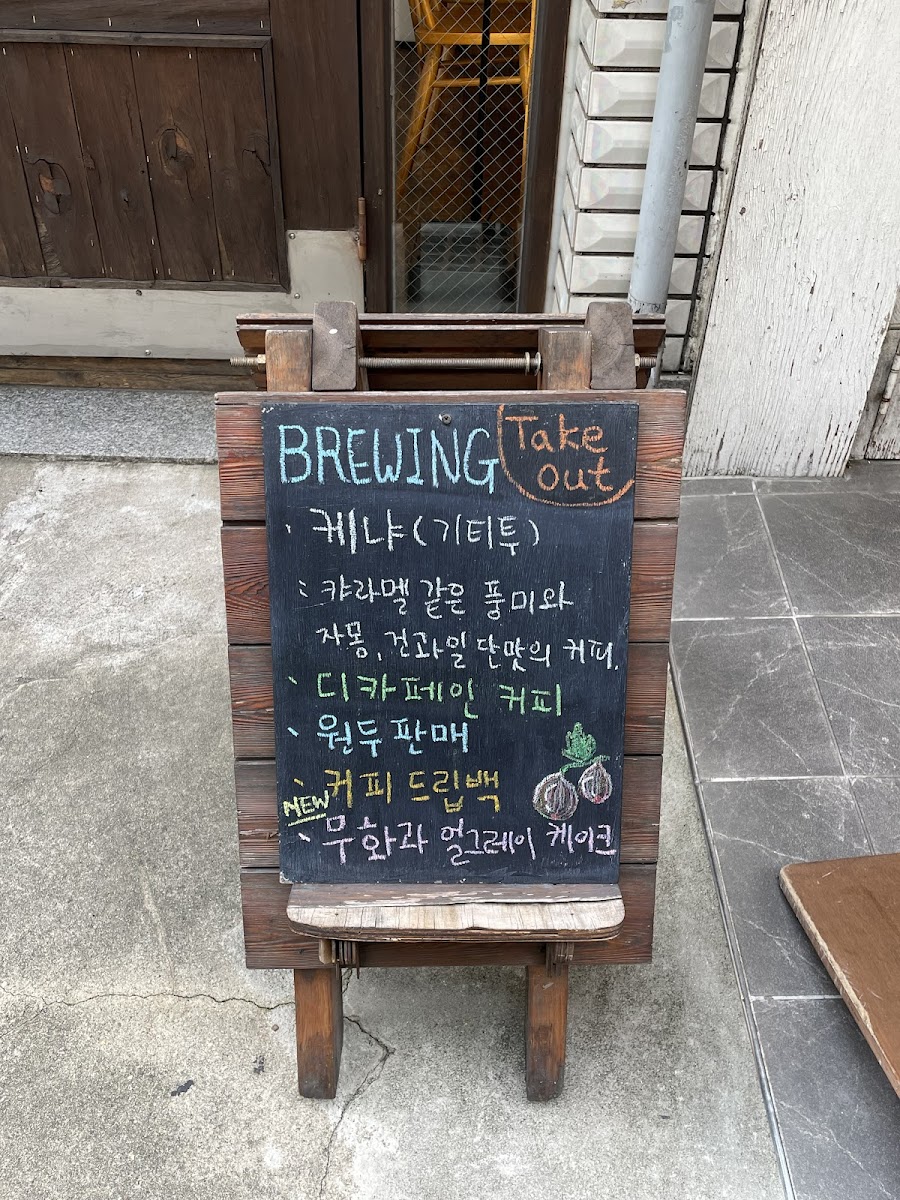 BREWING
Take
out
· 케냐(기티투)
: 캬라멜 같은 풍미와
자몽, 건과일 단맛의 커피.
· 디카페인 커피
· 원두판매
· 커피 드립백
NEW
· 무화과 얼그레이 케이크